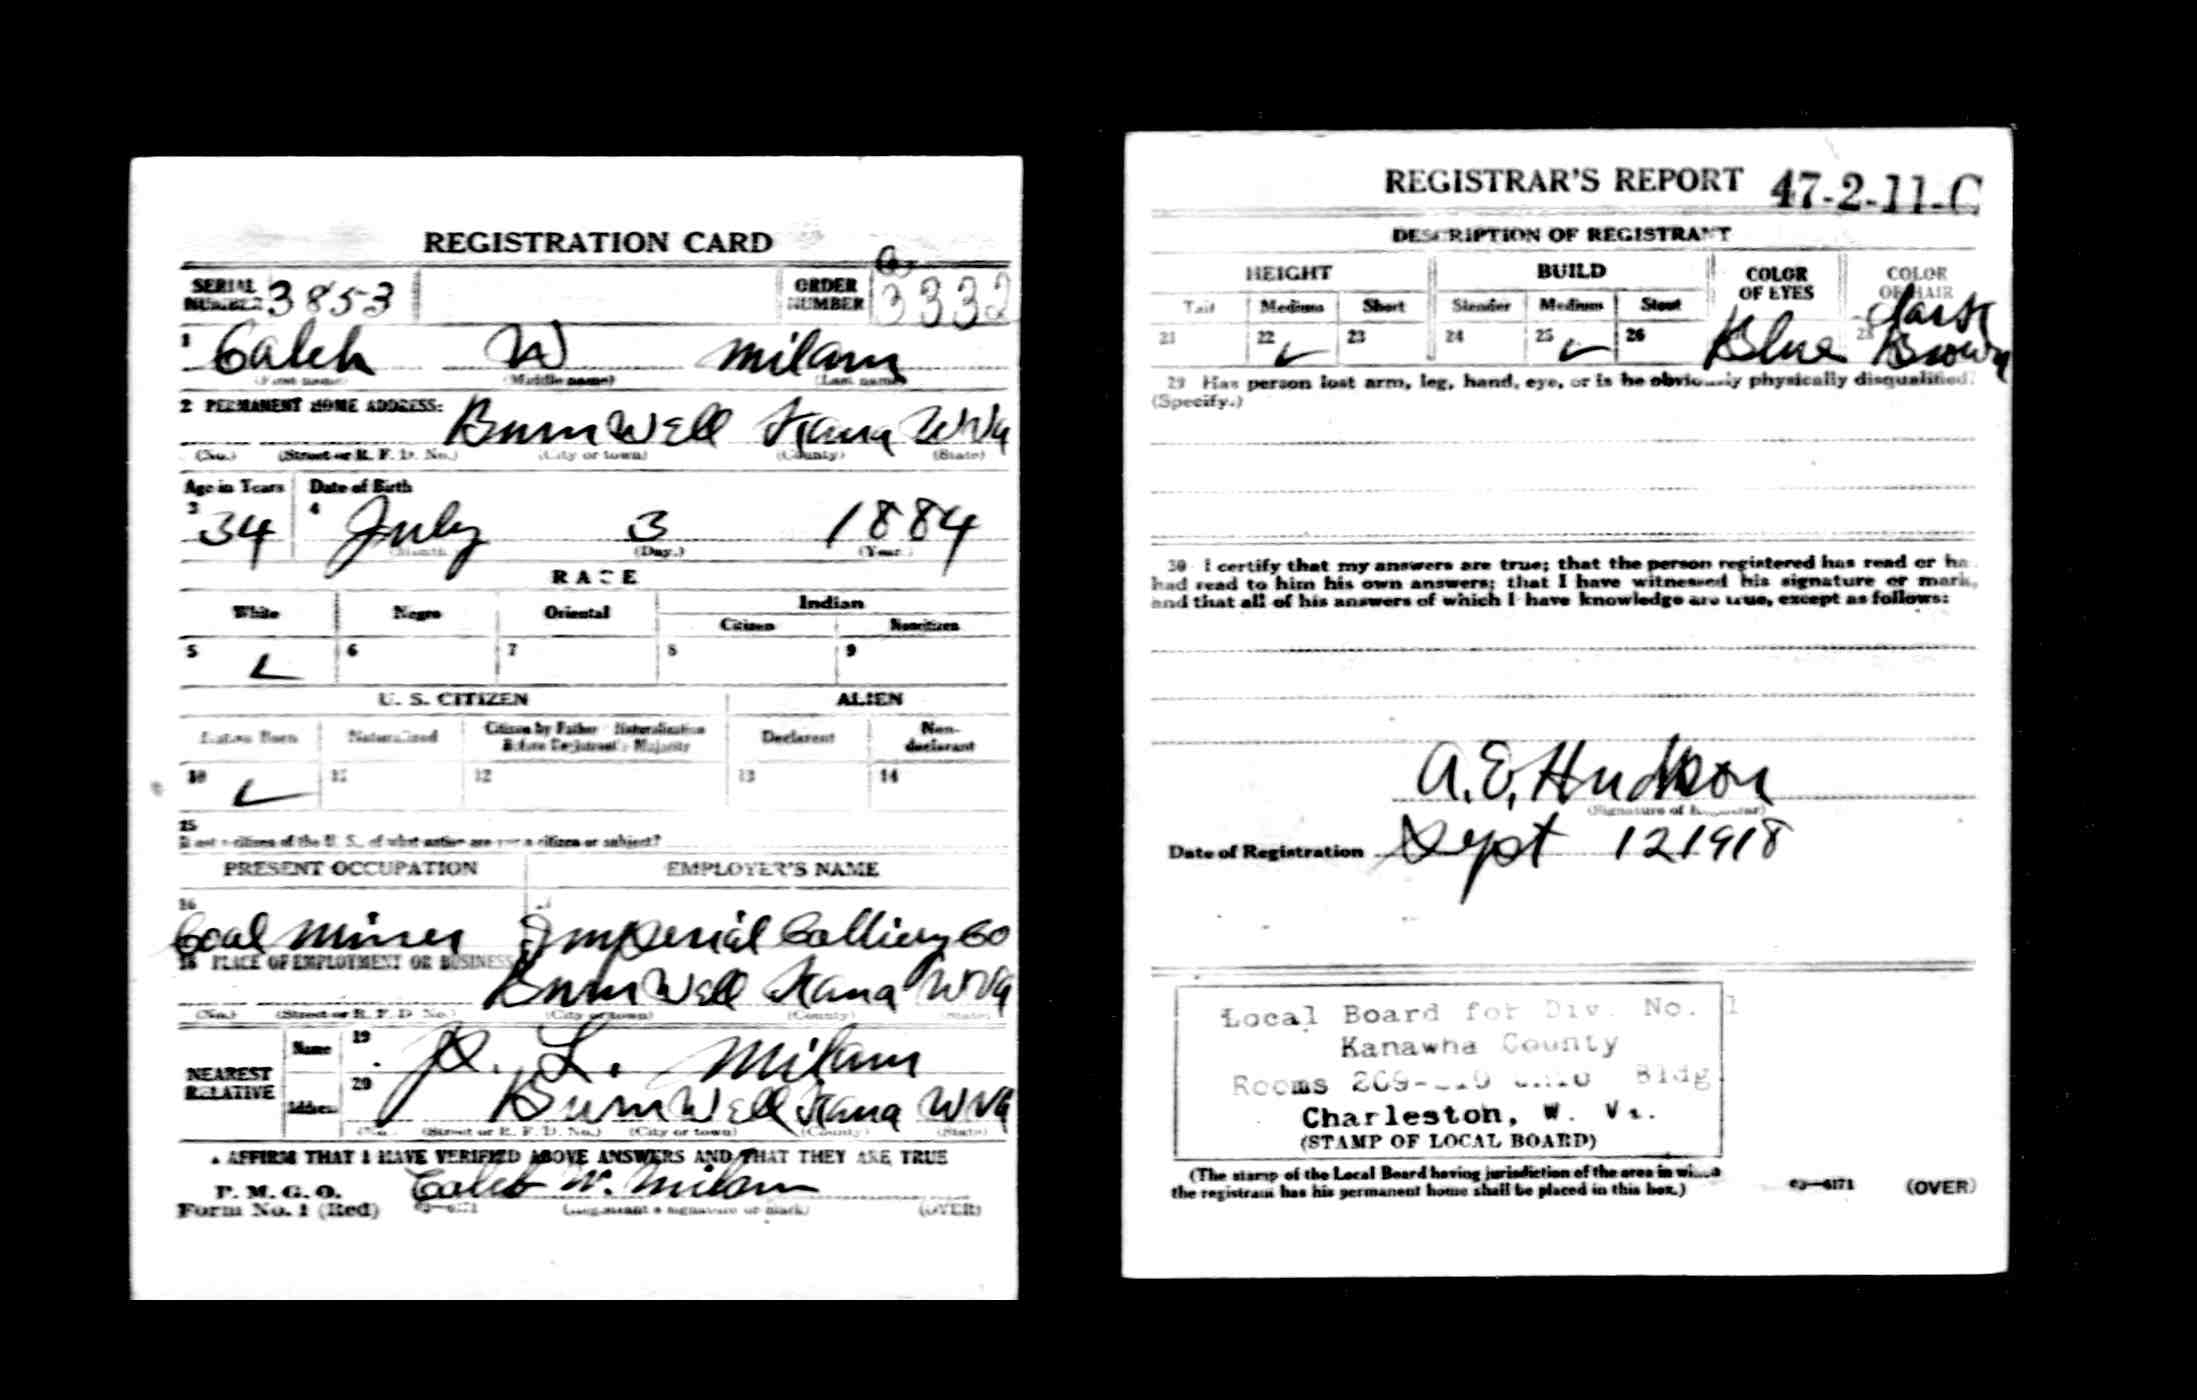 REGISTRATION CARD
SERIAL NUMBER 3853
ORDER NUMBER 3332
1 Caleb W Milam
(First name) (Middle name) (Last name)
2 PERMANENT HOME ADDRESS:
BurnWell Kana WVa
(No.) (Street or R. F. D. No.) (City or town) (County) (State)
Age in Years Date of Birth
3 34 4 July 3 1884
(Month.) (Day.) (Year.)
RACE
White Negro Oriental Indian
Citizen Noncitizen
5 6 7 8 9
U. S. CITIZEN ALIEN
Native Born Naturalized Citizen by Father's Naturalization Before Registrant's Majority Declarant Non-declarant
10 11 12 13 14
15
If not a citizen of the U. S., of what nation are you a citizen or subject?
PRESENT OCCUPATION EMPLOYER'S NAME
16
Coal Miner Imperial Colliery Co
18 PLACE OF EMPLOYMENT OR BUSINESS
BurnWell Kana WVa
(No.) (Street or R. F. D. No.) (City or town) (County) (State)
NEAREST RELATIVE
Name 19 L. Milam
Address 20 BurnWell Kana WVa
(No.) (Street or R. F. D. No.) (City or town) (County) (State)
AFFIRM THAT I HAVE VERIFIED ABOVE ANSWERS AND THAT THEY ARE TRUE
P. M. G. O.
Form No. 1 (Red)
Caleb W. Milam
(Registrant's signature or mark) (OVER)
REGISTRAR'S REPORT 47-2-11-C
DESCRIPTION OF REGISTRANT
HEIGHT BUILD COLOR OF EYES COLOR OF HAIR
Tall Medium Short Slender Medium Stout
21 22 23 24 25 26 Blue 28 Dark Brown
29 Has person lost arm, leg, hand, eye, or is he obviously physically disqualified?
(Specify.)
30 I certify that my answers are true; that the person registered has read or has
had read to him his own answers; that I have witnessed his signature or mark,
and that all of his answers of which I have knowledge are true, except as follows:
A. E. Hudson
(Signature of Registrar)
Date of Registration Sept 12 1918
Local Board for Div. No. 1
Kanawha County
Rooms Bldg
Charleston, W. Va.
(STAMP OF LOCAL BOARD)
(The stamp of the Local Board having jurisdiction of the area in which
the registrant has his permanent home shall be placed in this box.)
03—6171 (OVER)